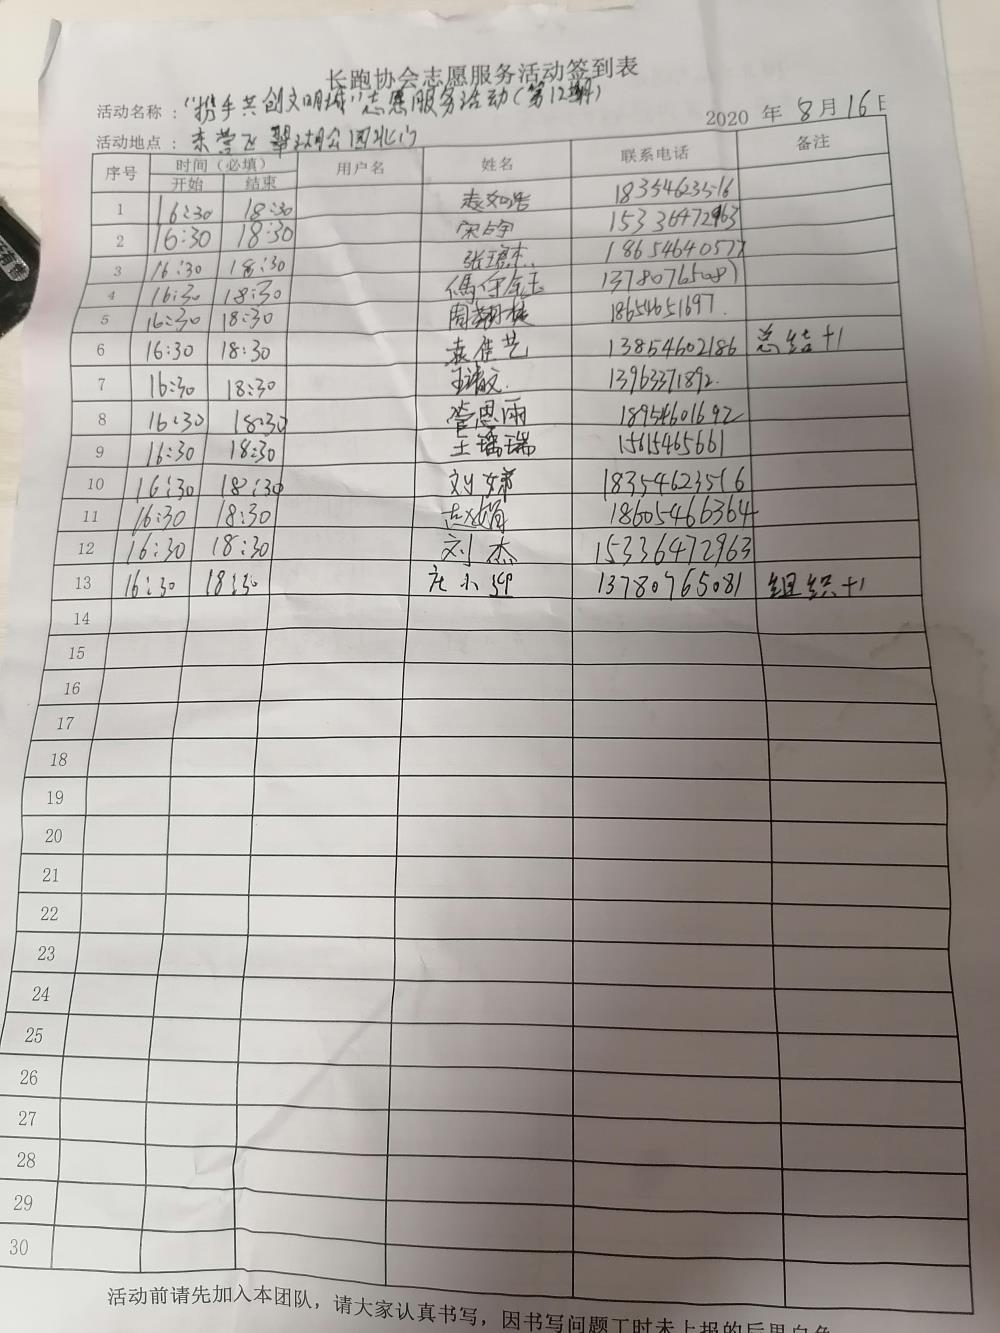 长跑协会志愿服务活动签到表
活动名称：“携手共创文明城”志愿服务活动(第12期)
2020 年 8月16日
活动地点：东营区翠湖公园北门
序号 时间（必填） 用户名 姓名 联系电话 备注
开始 结束
1 16:30 18:30 18354623516
2 16:30 18:30 15336472963
3 16:30 18:30 18654640577
4 16:30 18:30 13780765087
5 16:30 18:30 18654651697
6 16:30 18:30 袁佳艺 13854602186 总结+1
7 16:30 18:30 13963371892
8 16:30 18:30 营思雨 18954601692
9 16:30 18:30 王璠瑞 15615465661
10 16:30 18:30 刘娣 18354623516
11 16:30 18:30 赵娟 18605466364
12 16:30 18:30 刘杰 15336472963
13 16:30 18:30 13780765081 组织+1
14
15
16
17
18
19
20
21
22
23
24
25
26
27
28
29
30
活动前请先加入本团队，请大家认真书写，因书写问题工时未上报的后果自负